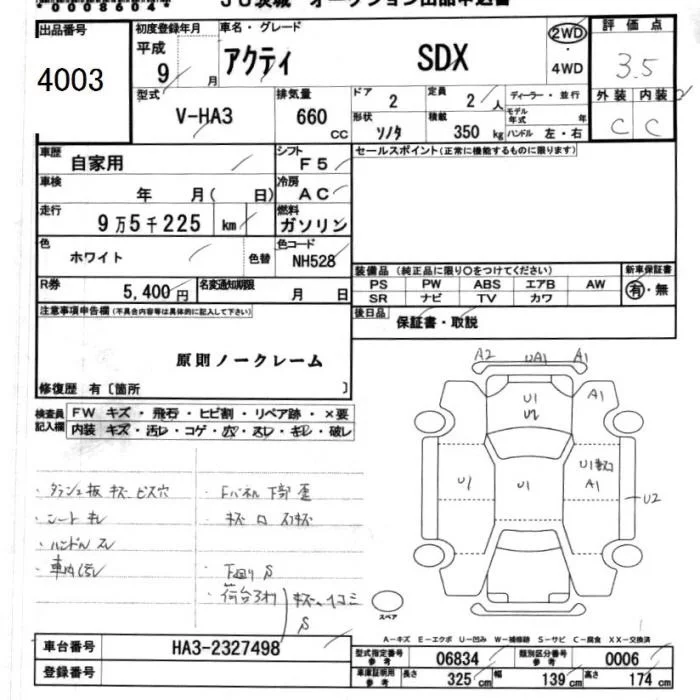 出品番号
4003
初度登録年月
平成
9 月
車名・グレード
アクティ SDX
2WD
・
4WD
評価点
3.5
外装 内装
C C
型式
V-HA3
排気量
660 cc
ドア
2
定員
2 人
形状
ソノタ
積載
350 kg
ディーラー・並行
モデル年式 年
ハンドル 左・右
車歴
自家用
シフト
F5
車検
年 月( 日)
冷房
AC
走行
9万5千225 km
燃料
ガソリン
色
ホワイト
色替
色コード
NH528
R券
5,400円
名変通知期限
月 日
セールスポイント(正常に機能するものに限ります)
装備品(純正品に限り○をつけてください)
PS PW ABS エアB AW
SR ナビ TV カワ
新車保証書
有・無
後日品
保証書・取説
注意事項申告欄(不具合内容等は具体的に記入して下さい)
原則ノークレーム
修復歴 有〔箇所 〕
検査員記入欄
FW キズ・飛石・ヒビ割・リペア跡・×要
内装 キズ・汚レ・コゲ・穴・スレ・キレ・破レ
・ダッシュ板 キズ ビス穴
・シート キレ
・ハンドル スレ
・車内汚レ
・Fパネル下部 歪
・下回り S
・荷台
A2 UA1 A1
U1
A1
U1
U1
U1
A1
U2
スペア
A-キズ E-エクボ U-凹み W-補修跡 S-サビ C-腐食 XX-交換済
車台番号
HA3-2327498
登録番号
型式指定番号
参考
06834
類別区分番号
参考
0006
車庫証明用
参考
長さ 325 cm 幅 139 cm 高さ 174 cm